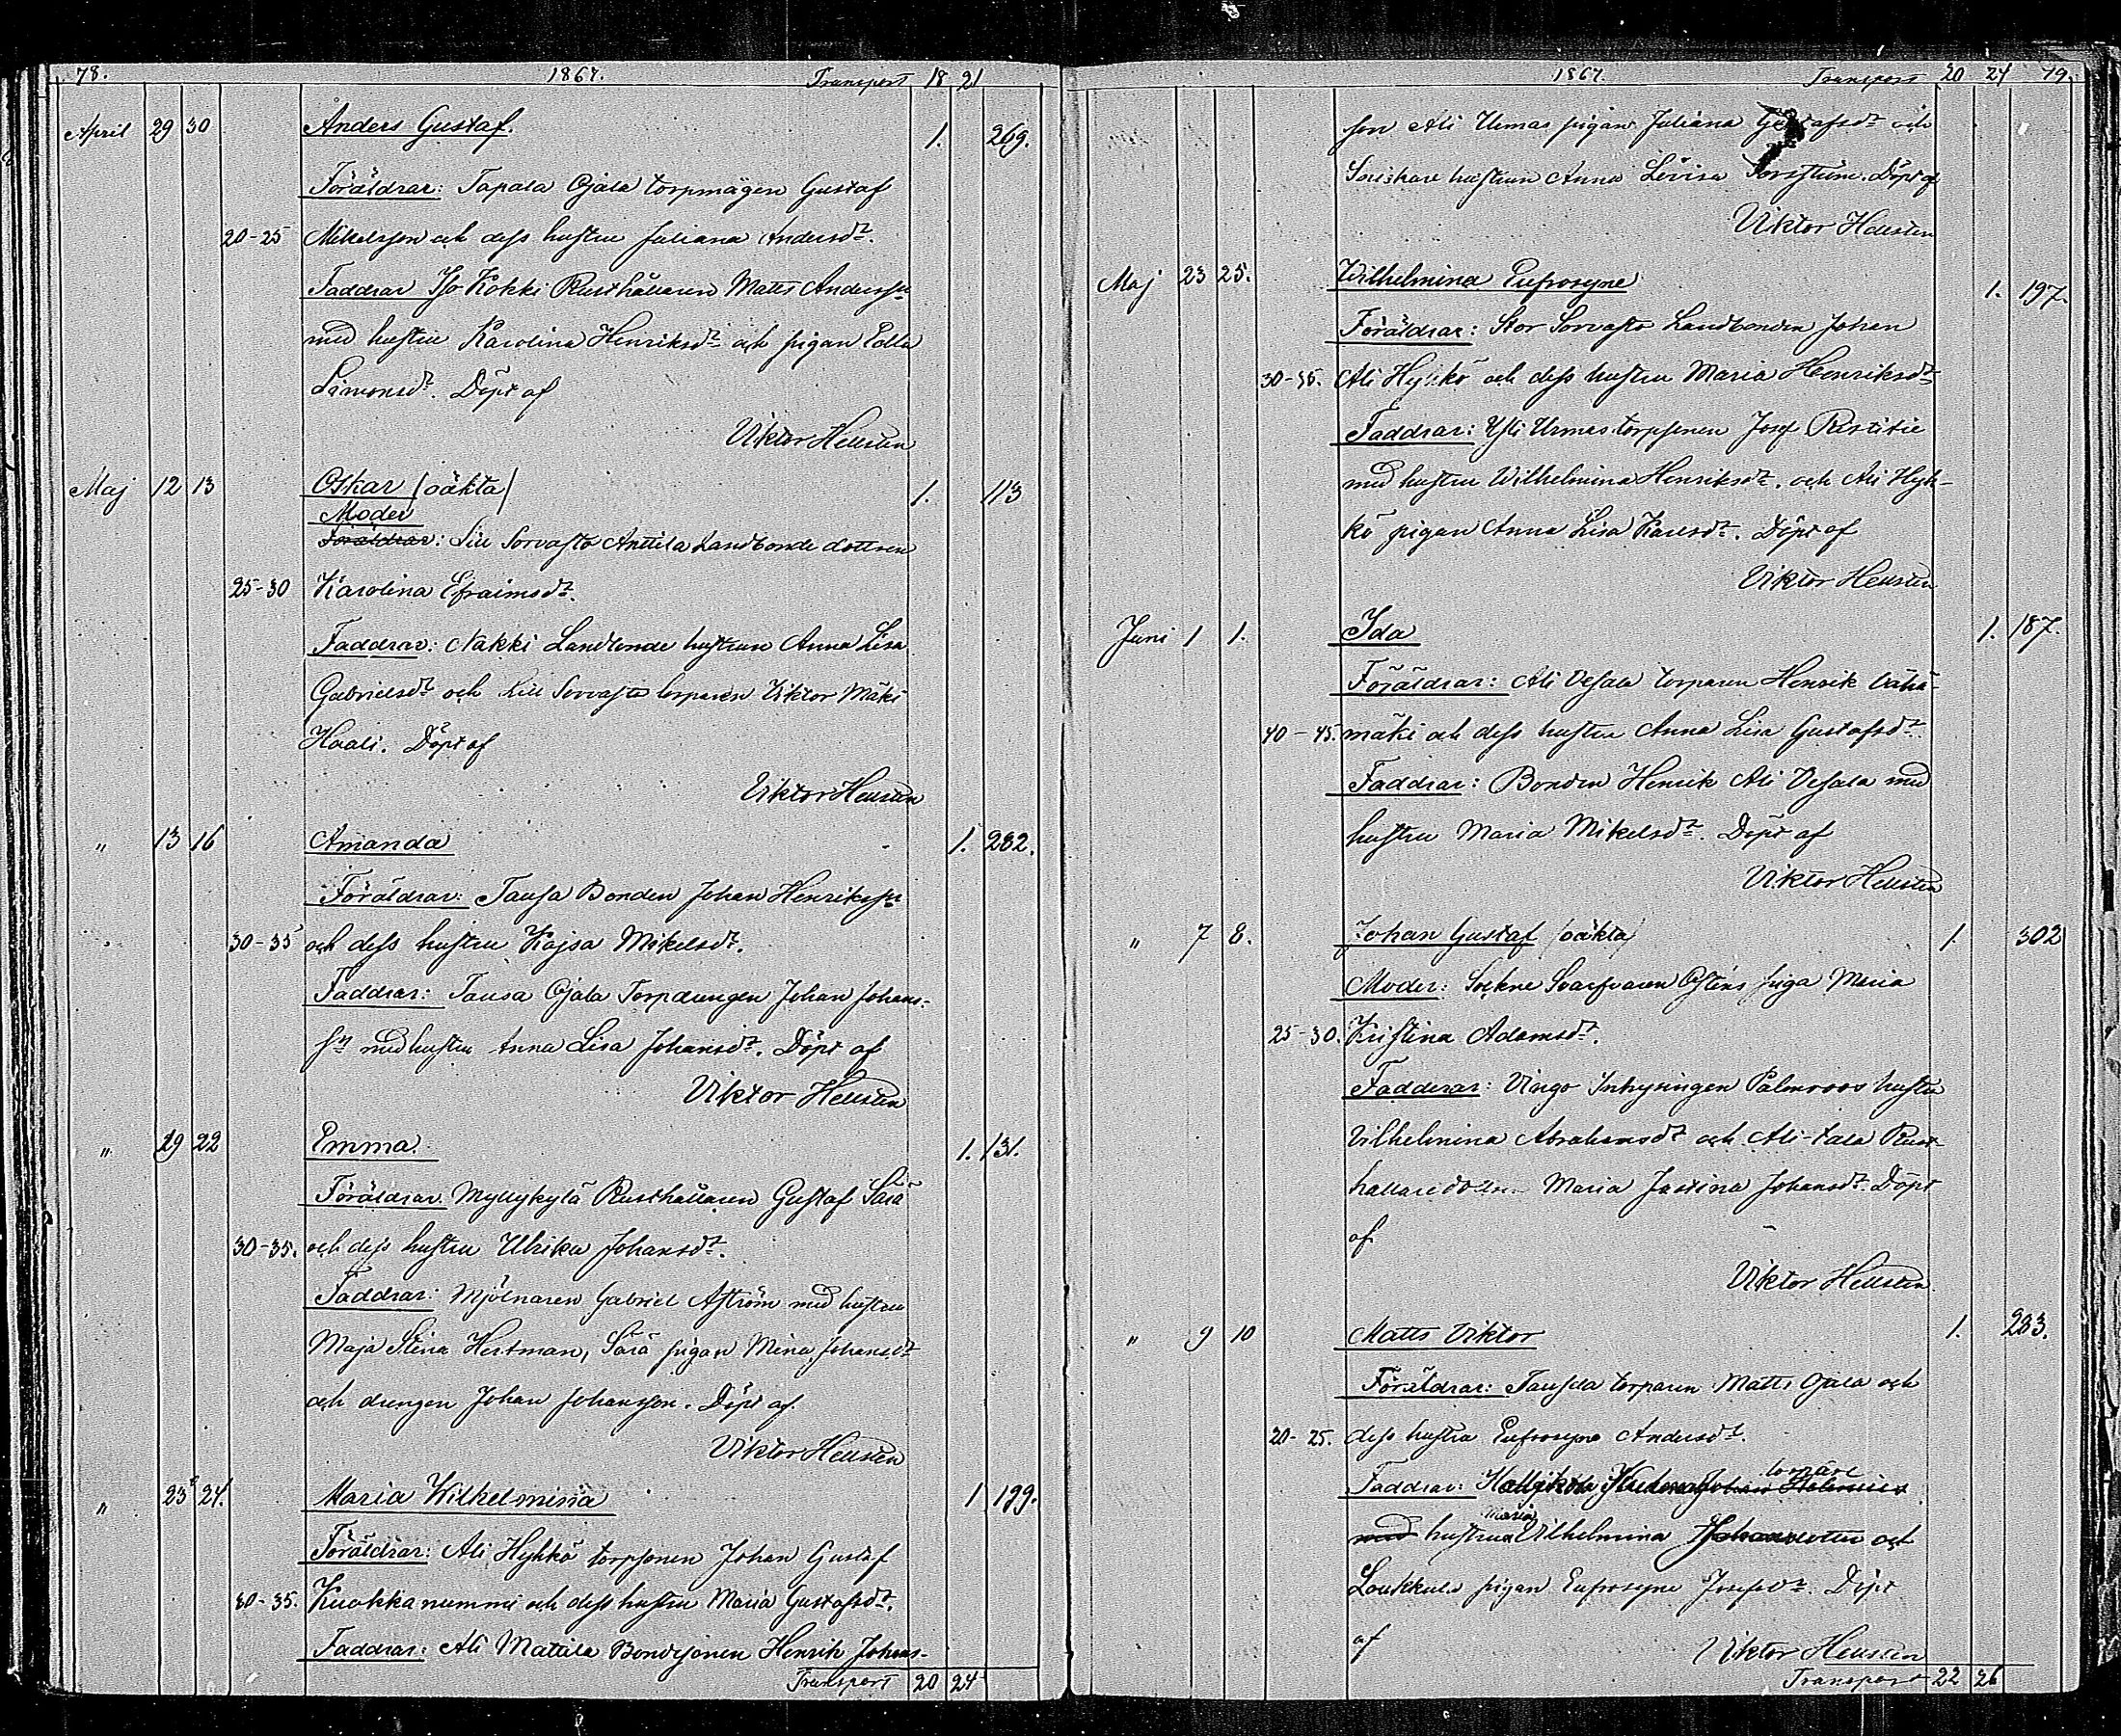 78. 1867. Transport 18 21
April 29 30 Anders Gustaf. 1. 269.
Föräldrar: Tapala Ojala torpmågen Gustaf
20-25 Mikelsson och dess hustru Juliana Andersdr.
Faddrar Iso Kokki Rusthållaren Matts Anderssn
med hustru Karolina Henriksdr och pigan Edla
Simonsdr. Döpt af
Viktor Hellsten
Maj 12 13 Oskar (oäkta) 1. 113
Moder
Föräldrar: Lill Sorvasto Anttila Landbonde dottren
25-30 Karolina Efraimsdr.
Faddrar: Nakki Landbonde hustrun Anna Lisa
Gabrielsdr och Lill Sorvasto torparen Viktor Mäki
Haali. Döpt af
Viktor Hellsten
" 13 16 Amanda 1. 282.
Föräldrar: Tausa Bonden Johan Henrikssn
30-35 och dess hustru Kajsa Mikelsdr.
Faddrar: Tausa Ojala Torpdrengen Johan Johans-
sn med hustru Anna Lisa Johansdr. Döpt af
Viktor Hellsten
" 19 22 Emma. 1. 131.
Föräldrar Myllykylä Rusthållaren Gustaf Särä
30-35. och dess hustru Ulrika Johansdr.
Faddrar: Mjölnaren Gabriel Aström med hustru
Maja Stina Hertman, Särä pigan Mina Johansdr
och drengen Johan Johansson. Döpt af
Viktor Hellsten
" 23 24. Maria Wilhelmina 1 199.
Föräldrar: Ali Hyhkö torpsonen Johan Gustaf
30-35. Kuokkanummi och dess hustru Maria Gustafsdr.
Faddrar: Ali Mattila Bondesonen Henrik Johans-
Transport 20 24
1867. Transport 20 24 79.
son Ali Urmas pigan Juliana Gustafsdr och
hustrun Anna Lovisa Forsström. Döpt af
Viktor Hellsten
Maj 23 25. Wilhelmina Eufrosyne 1. 197.
Föräldrar: Stor Sorvasto Landbonden Johan
30-35. Ali Hyhkö och dess hustru Maria Henriksdr
Faddrar: Yli Urmas torpsonen Josef Ristitie
med hustru Wilhelmina Henriksdr. och Ali Hyh-
kö pigan Anna Lisa Karlsdr. Döpt af
Viktor Hellsten
Juni 1 1. Ida 1. 187.
Föräldrar: Ali Vesala torparen Henrik Vähä-
40-45. mäki och dess hustru Anna Lisa Gustafsdr
Faddrar: Bonden Henrik Ali Vesala med
hustru Maria Mikelsdr. Döpt af
Viktor Hellsten
" 7 8. Johan Gustaf (oäkta) 1. 302
Moder: Sockne Svarfvaren Osténs piga Maria
25-30. Kristina Adamsdr.
Fadderar: Vingo Inhysingen Palmroos hustru
Vilhelmina Abrahamsdr och Ali-tala Rust-
hållaredottren Maria Justina Johansdr. Döpt
af
Viktor Hellsten
" 9 10 Matts Viktor 1. 283.
Föräldrar: Tausala torparen Matts Ojala och
20-25. dess hustru Eufrosyne Andersdr.
torpare
Faddrar: Johan
Maria
med hustrun Vilhelmina och
Loukkula pigan Eufrosyne Josefsdr. Döpt
af Viktor Hellsten
Transport 22 26